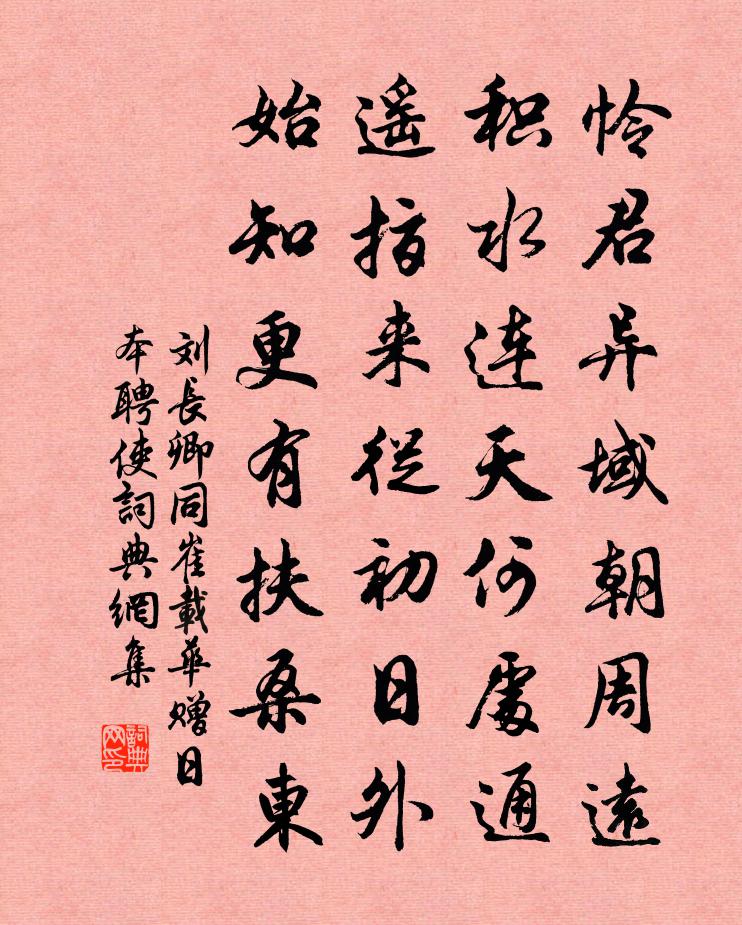 怜君异域朝周遠
积水连天何處通
遥指来從初日外
始知更有扶桑東
刘長卿同崔載華赠日
本聘使詞典網集
詞典网印